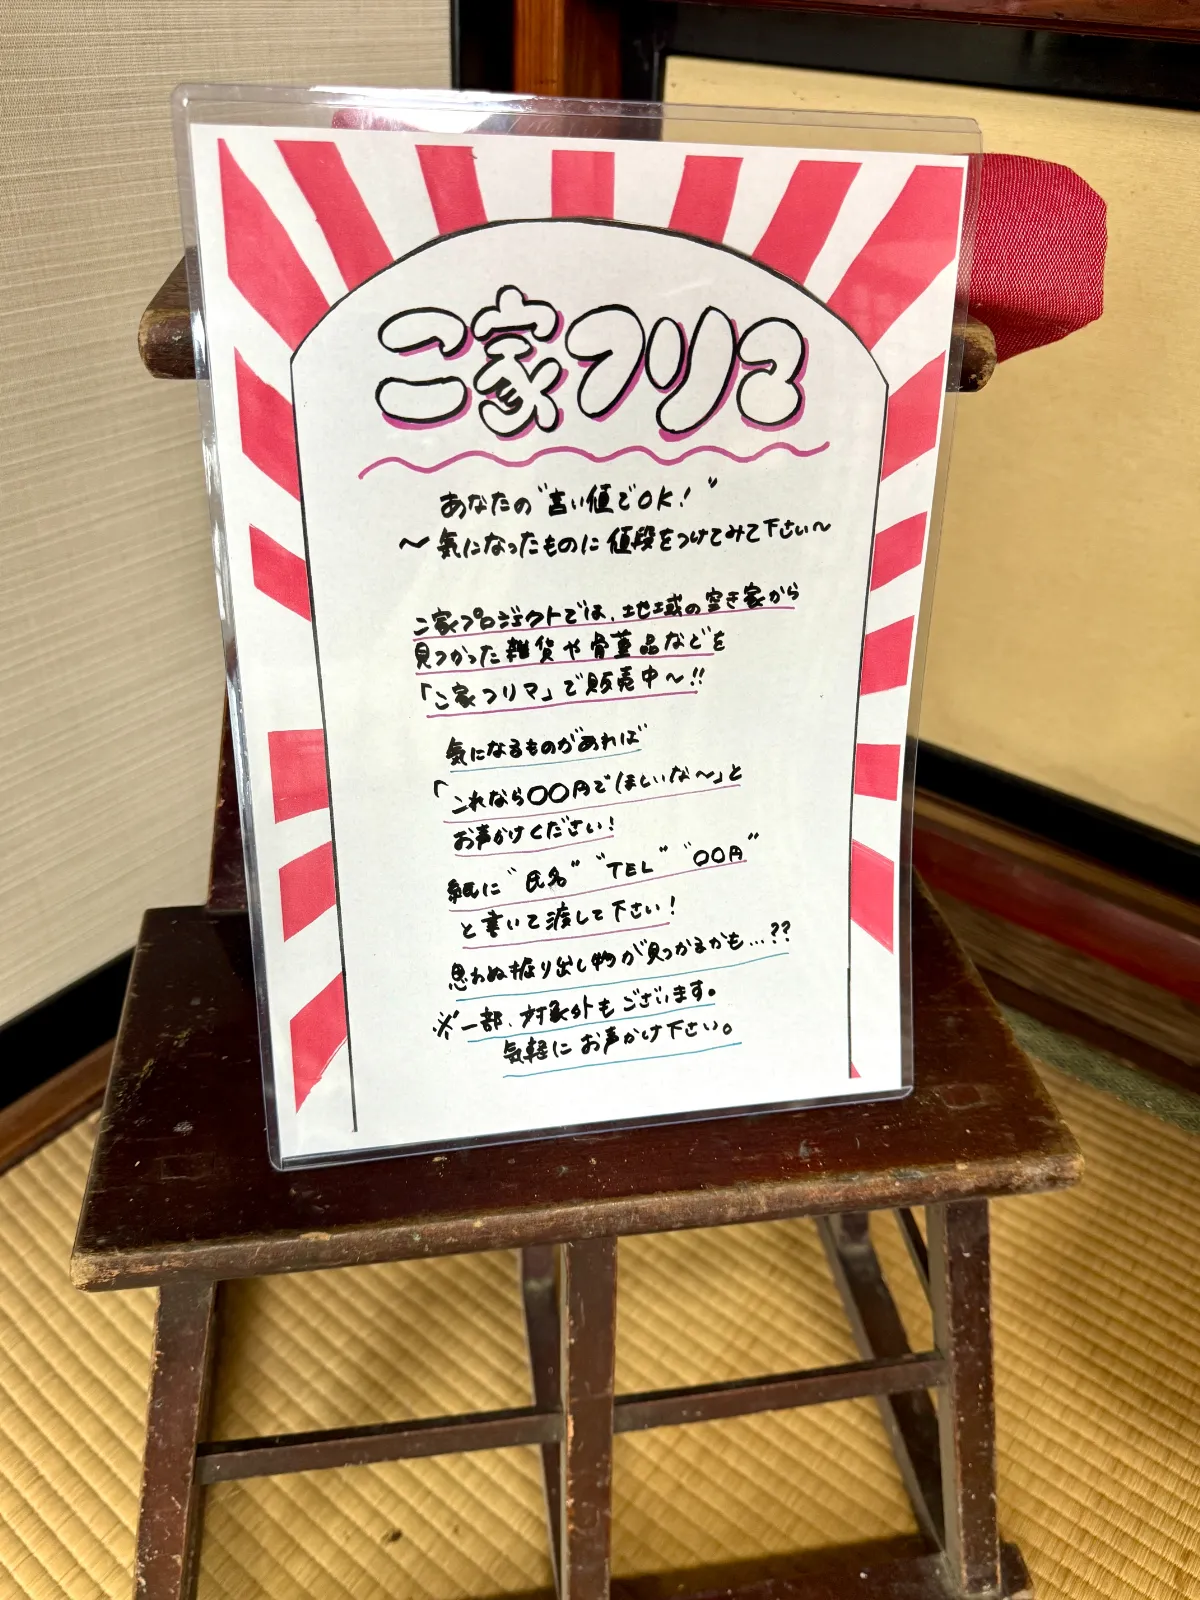 ご家フリマ
あなたの"言い値でOK!"
〜気になったものに値段をつけてみて下さい〜
ご家プロジェクトでは、地域の空き家から
見つかった雑貨や骨董品などを
「ご家フリマ」で販売中〜!!
気になるものがあれば
「これなら〇〇円でほしいな〜」と
お声かけください!
紙に"氏名""TEL""〇〇円"
と書いて渡して下さい!
思わぬ掘り出し物が見つかるかも…??
※一部、対象外もございます。
気軽にお声かけ下さい。